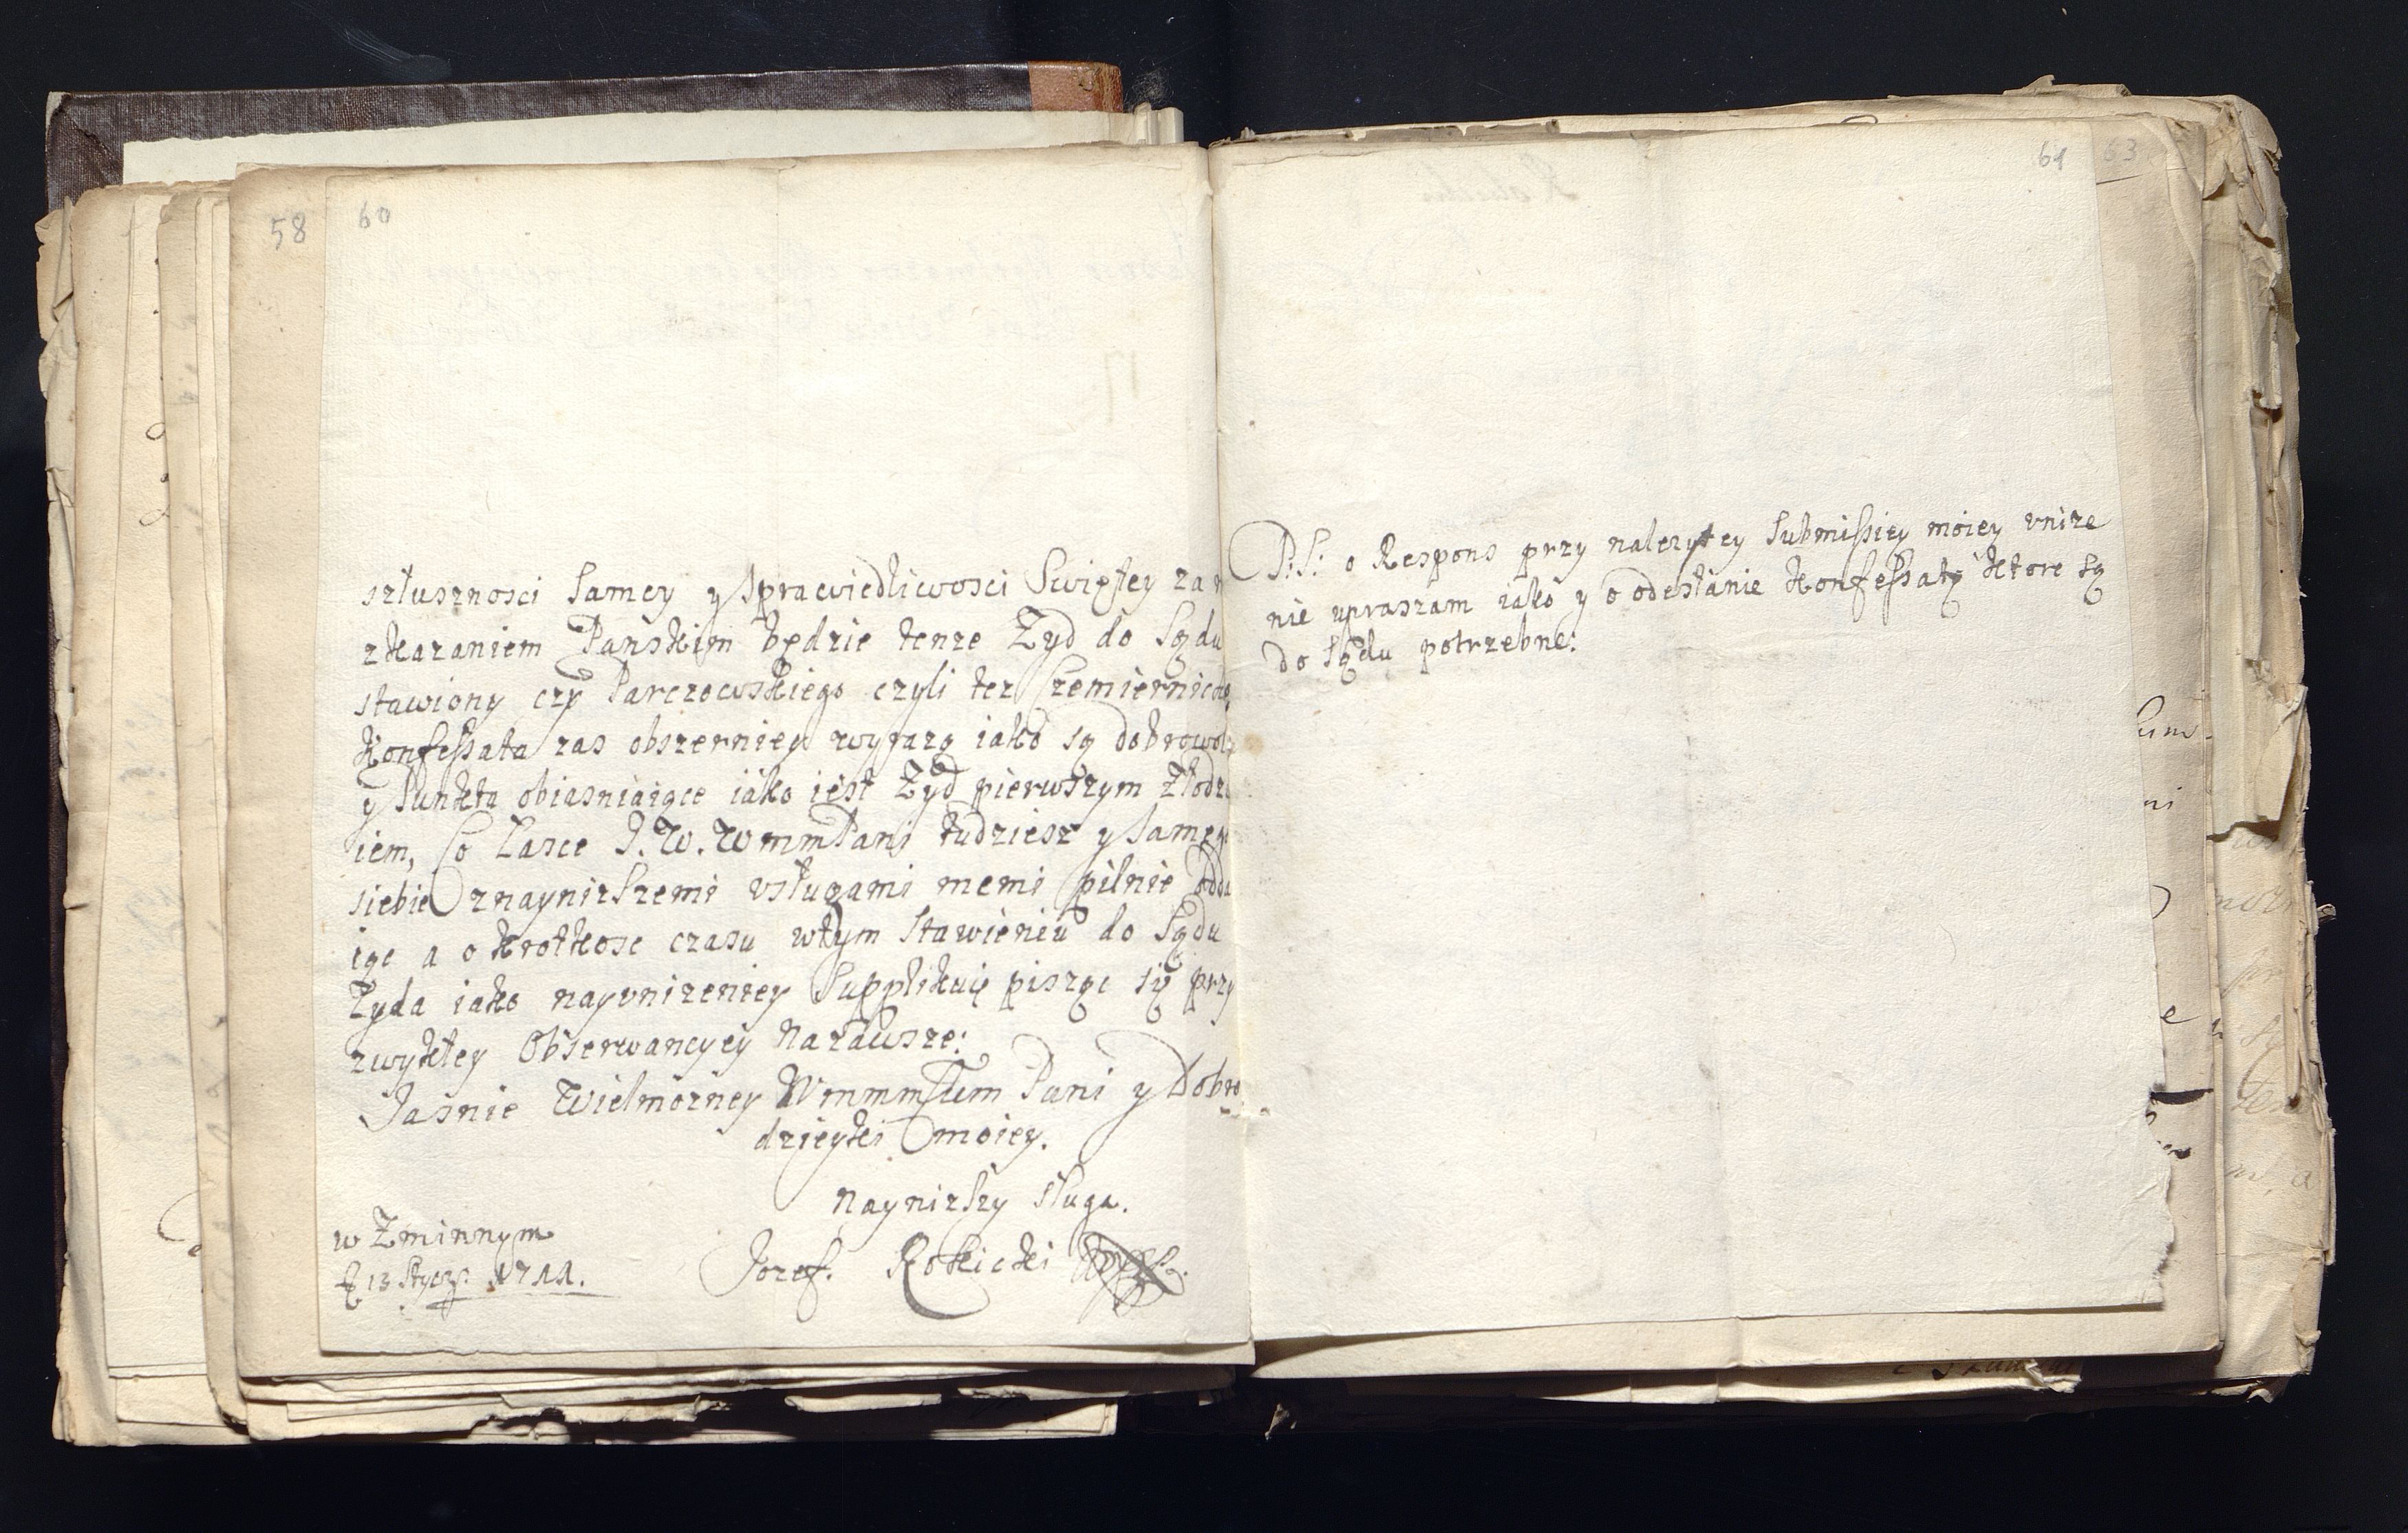 58 60
szłusznosci samey y sprawiedliwosci Swiętey za
zkazaniem Pańskim będzie tenze Zyd do Sądu
stawiony czy Parczowskiego czyli tez Czemiernick
Konfessata zas obszerniey wyrazą iako są dobrowol
y Punkta obiasniaiące iako iest Zyd pierwszym Złodz
iem, Co Łasce J. W. WmmPani tudziesz y samego
siebie znaynizszemi vsługami memi pilnie odda
iąc a o krotkosc czasu wtym stawieniu do Sądu
Zyda iako nayvnizeniey Supplikuię pisząc się przy
zwykłey Obserwancyey nazawsze:
Jasnie Wielmozney Pani y Dobro
dzieyki moiey.
Naynizszy sługa.
w Zminnym
13 Stycz. 1711. Jozef. Rokicki
61 63
P:S: o Respons przy nalezytey Submissiey moiey vnize
nie upraszam iako y o odesłanie Konfessaty ktore są
do Sądu potrzebne: